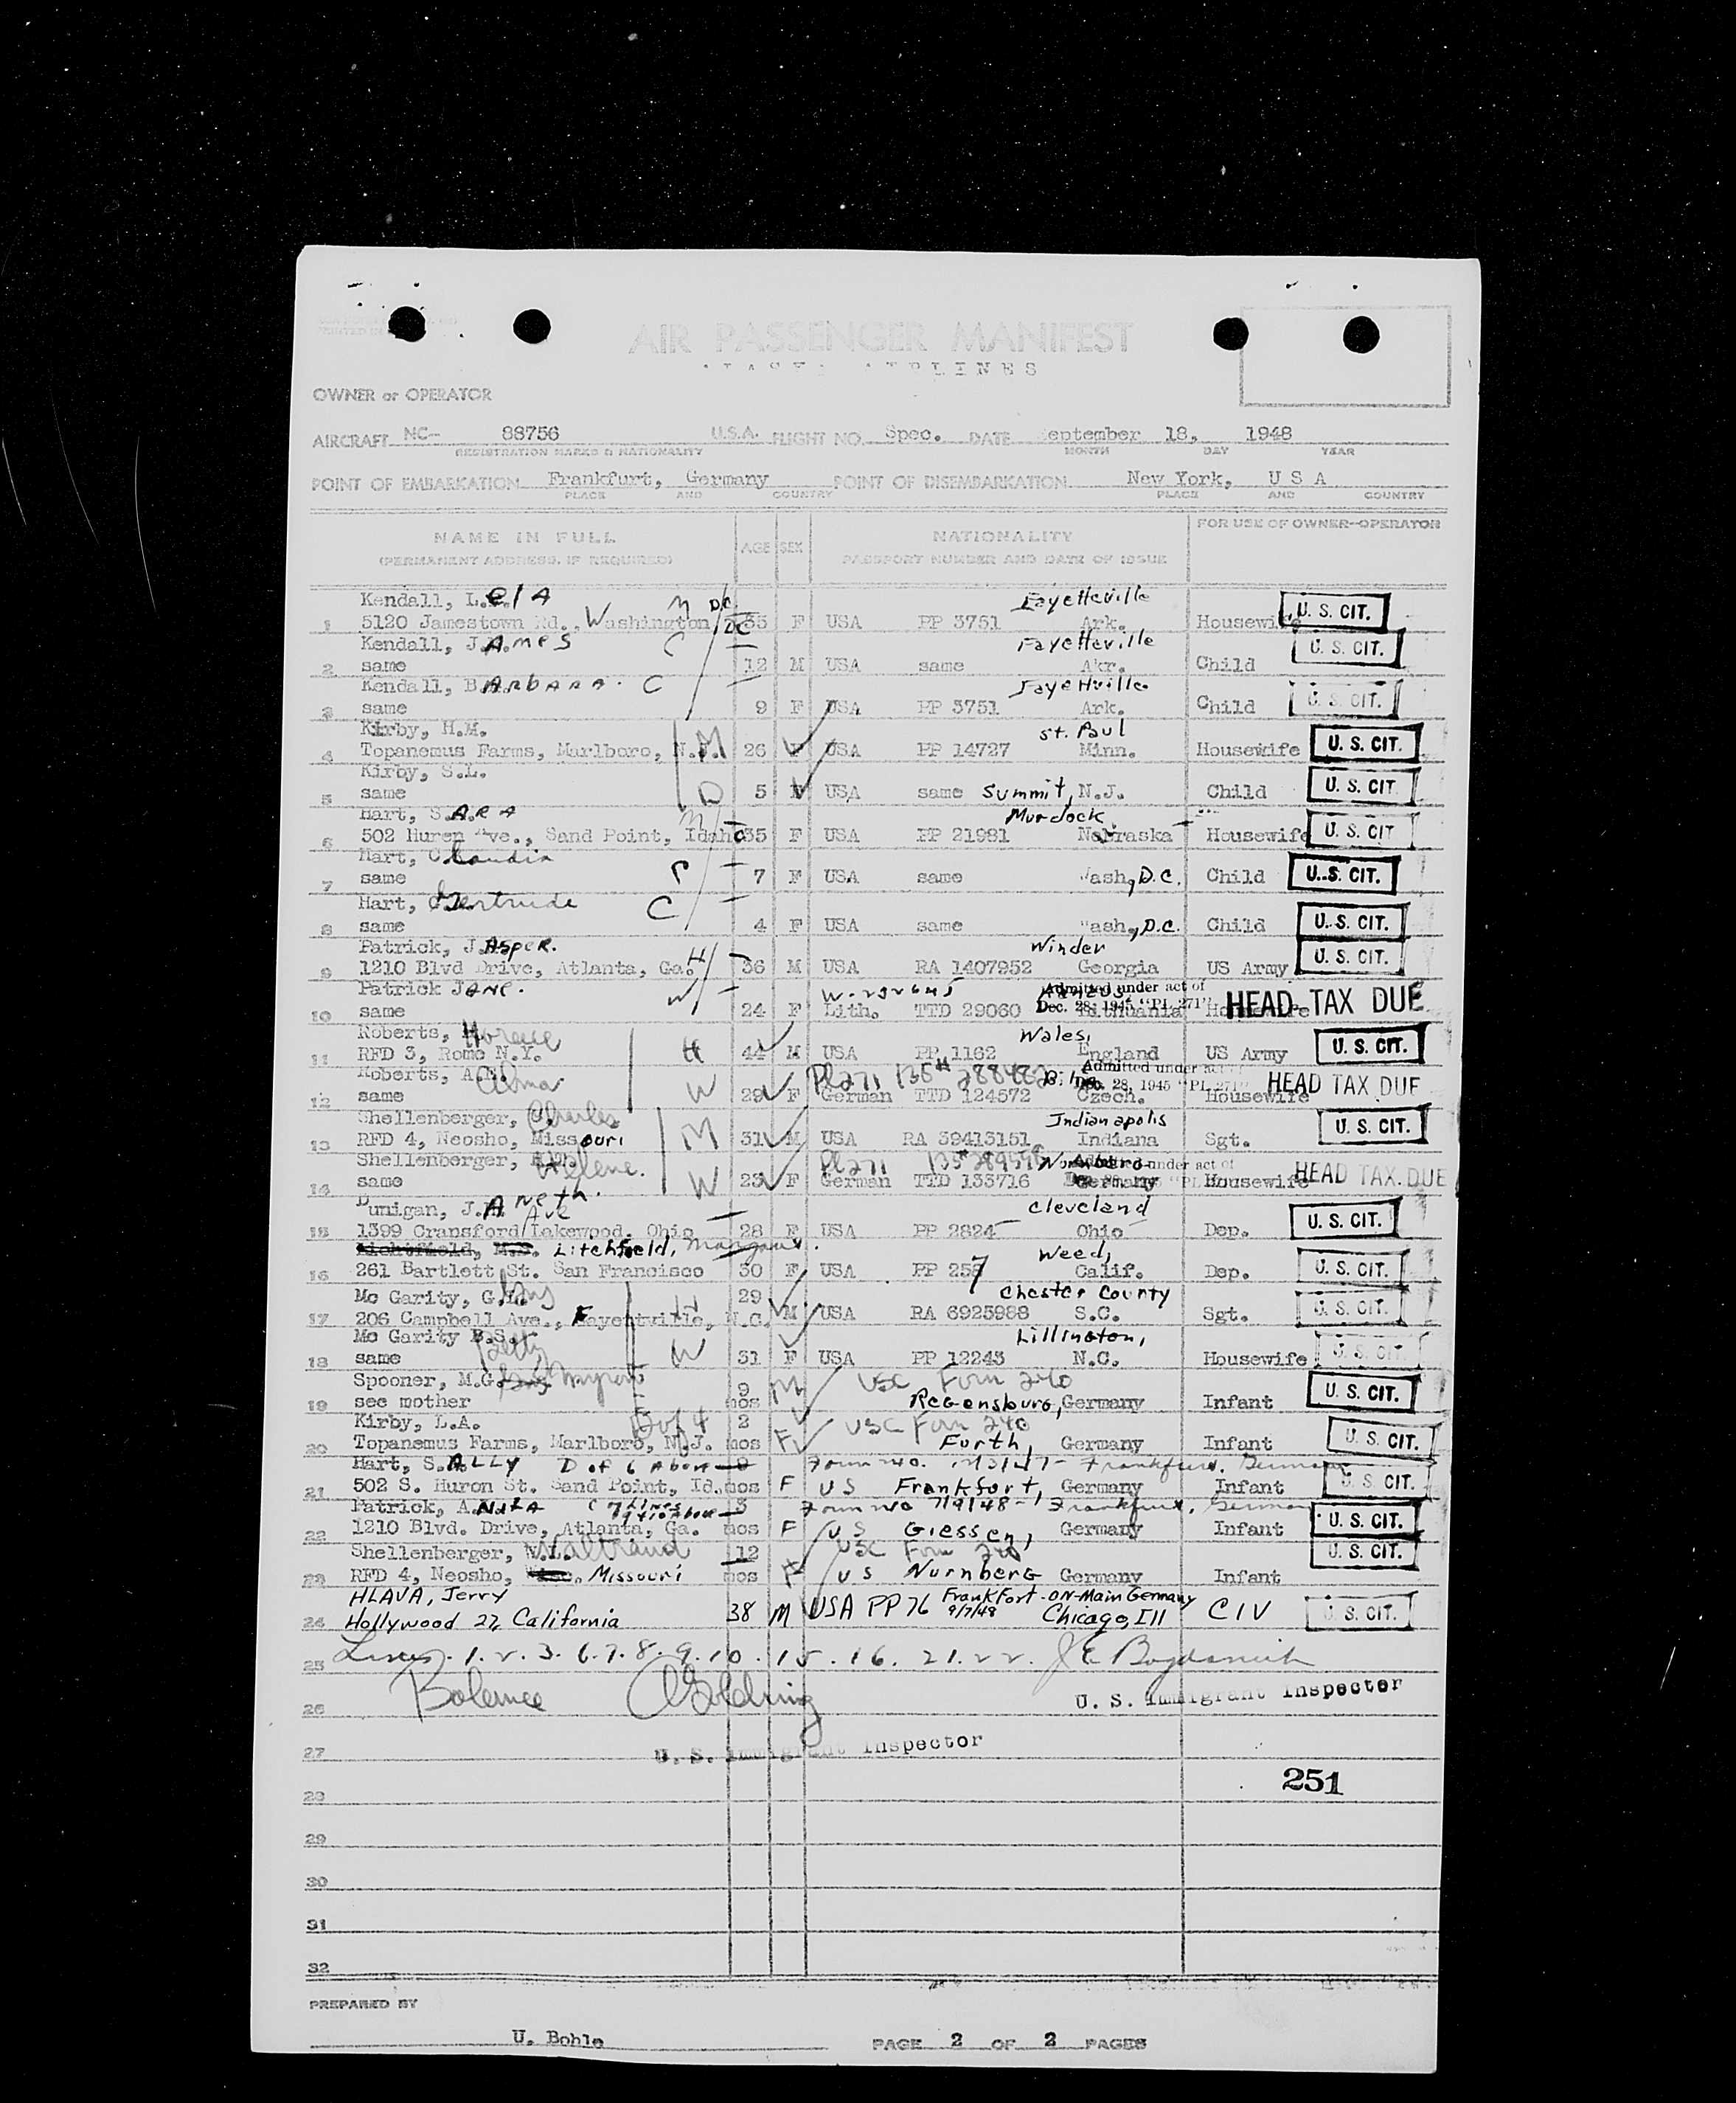 AIR PASSENGER MANIFEST
AIRLINES
OWNER or OPERATOR
AIRCRAFT NC- 88756 U.S.A. FLIGHT NO. Spec. DATE September 18, 1948
REGISTRATION MARKS & NATIONALITY MONTH DAY YEAR
POINT OF EMBARKATION Frankfurt, Germany POINT OF DISEMBARKATION New York, U S A
PLACE AND COUNTRY PLACE AND COUNTRY
FOR USE OF OWNER-OPERATOR
NAME IN FULL AGE SEX NATIONALITY
(PERMANENT ADDRESS, IF REQUIRED) PASSPORT NUMBER AND DATE OF ISSUE
Kendall, L.elA M D.C. Fayetteville
1 5120 Jamestown Rd., Washington DC 35 F USA PP 3751 Ark. Housewife U. S. CIT.
Kendall, J.AMES C Fayetteville
2 same 12 M USA same Akr. Child U. S. CIT.
Kendall, BARBARA. C Fayettville
3 same 9 F USA PP 3751 Ark. Child U. S. CIT.
Kirby, H.M. St. Paul
4 Topanemus Farms, Marlboro, N.J. M 26 F USA PP 14727 Minn. Housewife U. S. CIT.
Kirby, S.L.
5 same D 5 F USA same Summit, N.J. Child U. S. CIT
Hart, SARA M Murdock
6 502 Huron Ave., Sand Point, Idaho 35 F USA PP 21981 Nebraska Housewife U. S. CIT
Hart, Claudia
7 same C 7 F USA same Wash, D.C. Child U. S. CIT.
Hart, Gertrude C
8 same 4 F USA same Wash, D.C. Child U. S. CIT.
Patrick, JAsper. H Winder
9 1210 Blvd Drive, Atlanta, Ga. 36 M USA RA 1407952 Georgia US Army U. S. CIT.
Patrick JANE. W W-232645 Admitted under act of
10 same 24 F Lith. TTD 29060 Dec. 28, 1945 "PL 271" Lithuania Housewife HEAD TAX DUE
Roberts, Horace Wales,
11 RFD 3, Rome N.Y. H 44 M USA PP 1162 England US Army U. S. CIT.
Roberts, Alma PL271 135# 288482 Admitted under act
12 same W 29 F German TTD 124572 Dec. 28, 1945 "PL 271" Czech. Housewife HEAD TAX DUE
Shellenberger, Charles Indianapolis
13 RFD 4, Neosho, Missouri M 31 M USA RA 39413151 Indiana Sgt. U. S. CIT.
Shellenberger, Helene. PL271 Admitted under act of
14 same W 23 F German TTD 133716 Germany Housewife HEAD TAX DUE
Dunigan, J.Aneth. Ave Cleveland
15 1399 Cransford Lakewood, Ohio 28 F USA PP 2824 Ohio Dep. U. S. CIT.
Litchfield, Margaret. Weed,
16 261 Bartlett St. San Francisco 30 F USA PP 257 Calif. Dep. U. S. CIT.
Mc Garity, G. 29 Chester County
17 206 Campbell Ave., Fayentville, N.C. H M USA RA 6925988 S.C. Sgt. U. S. CIT.
Mc Garity B.S. Betty Lillington,
18 same W 31 F USA PP 12243 N.C. Housewife U. S. CIT
Spooner, M.G. Myron 9 M USC Form 240
19 see mother mos Regensburg, Germany Infant U. S. CIT.
Kirby, L.A. D of 4 2 USC Form 240
20 Topanemus Farms, Marlboro, N.J. mos F Furth, Germany Infant U. S. CIT.
Hart, SALLY D of 6 Above 9 Form 240. Frankfurt, Germany
21 502 S. Huron St. Sand Point, Id. mos F US Frankfort, Germany Infant U. S. CIT.
Patrick, ANitA C 7 Lines 9 & 10 above 3 Form 240 7/9/48 - Frankfurt, German
22 1210 Blvd. Drive, Atlanta, Ga. mos F US Giessen, Germany Infant U. S. CIT.
Shellenberger, Waltraud 12 USC Form 240 U. S. CIT.
23 RFD 4, Neosho, Missouri mos F US Nurnberg Germany Infant
HLAVA, Jerry Frankfort-ON-Main Germany
24 Hollywood 27, California 38 M USA PP 76 9/7/48 Chicago, Ill CIV U. S. CIT.
25 Lines. 1. 2. 3. 6. 7. 8. 9. 10. 15. 16. 21. 22.
26 U. S. Immigrant Inspector
27 U. S. Immigrant Inspector
251
28
29
30
31
32
PREPARED BY
U. Bohle PAGE 2 OF 2 PAGES